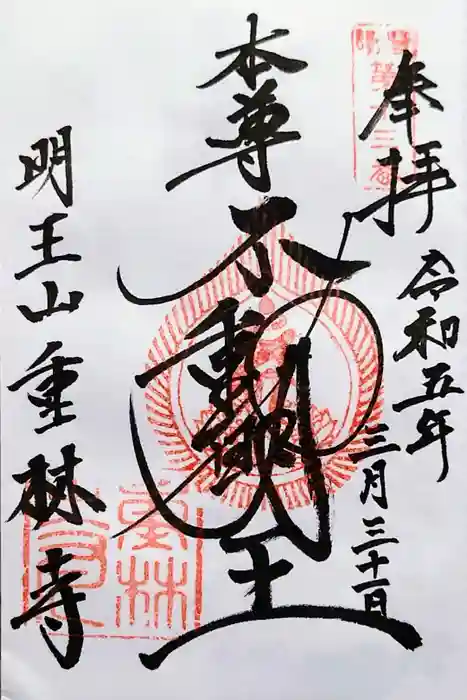 奉拝
令和五年
三月三十一日
本尊
不動明王
明王山重林寺
重林